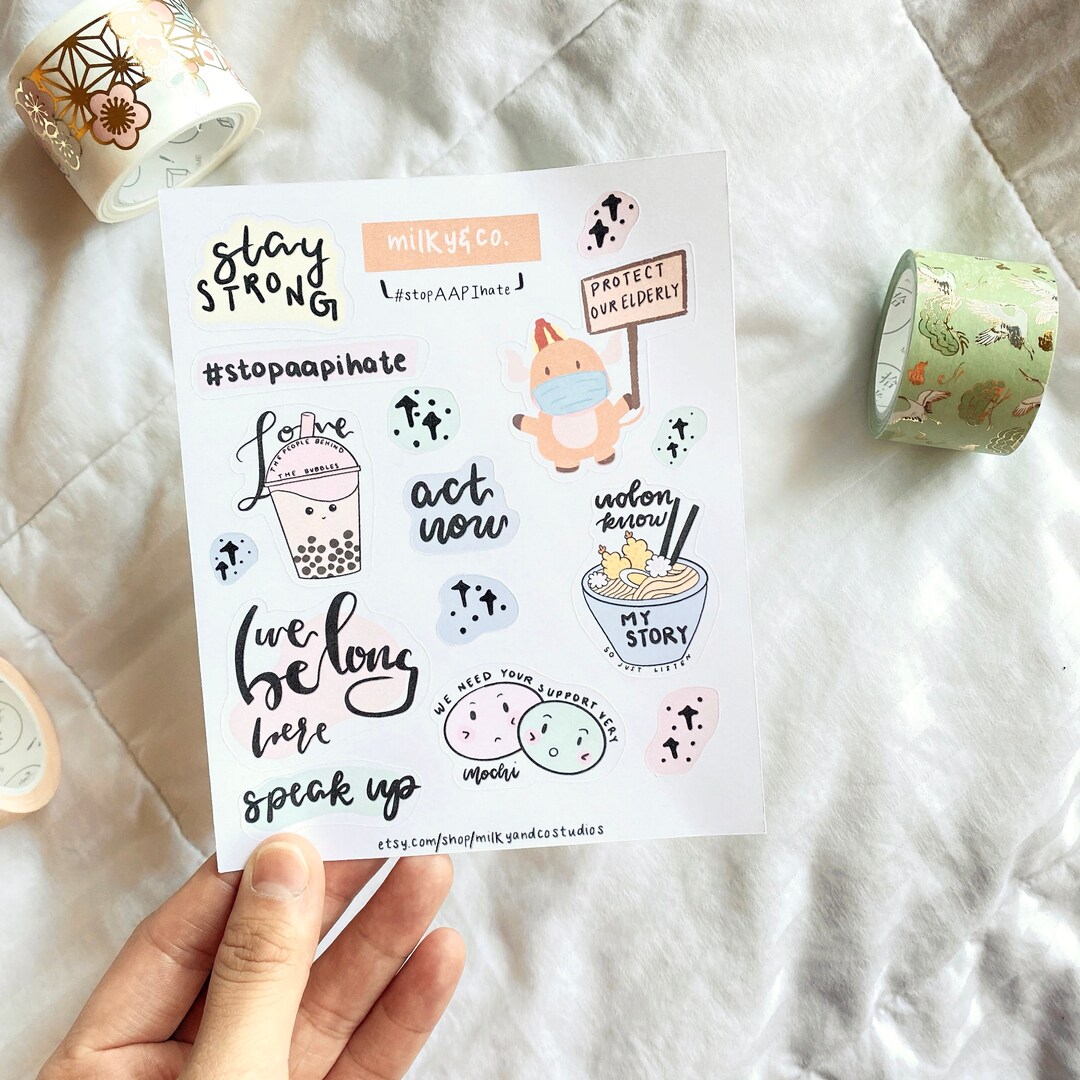 stay
STRONG
milky&co.
#stopAAPIhate
PROTECT
OUR ELDERLY
#stopaapihate
Love
THE PEOPLE BEHIND
THE BUBBLES
act
now
udon
know
MY
STORY
SO JUST LISTEN
we
belong
here
WE NEED YOUR SUPPORT VERY
mochi
speak up
etsy.com/shop/milkyandcostudios